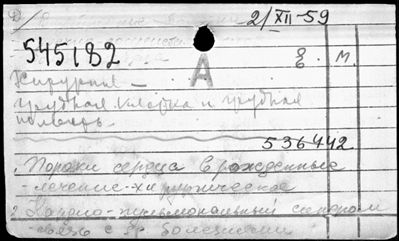 2/XII-59
545182
А
М.
Хирургия –
грудная клетка и грудная
полость.
536442
1. Пороки сердца врожденные
- лечение хирургическое
2. Кардио-пульмональный синдром
связь с др болезнями